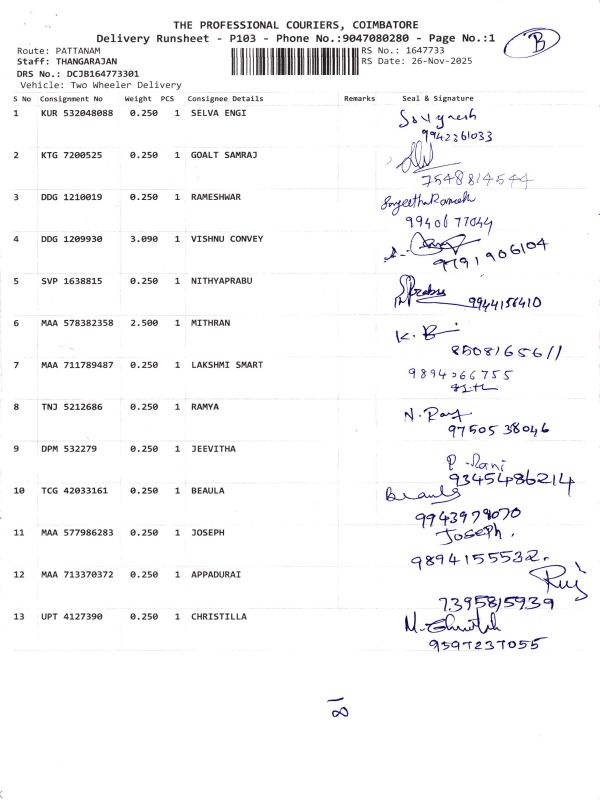 THE PROFESSIONAL COURIERS, COIMBATORE
Delivery Runsheet - P103 - Phone No.:9047080280 - Page No.:1
B
Route: PATTANAM
RS No.: 1647733
Staff: THANGARAJAN
RS Date: 26-Nov-2025
DRS No.: DCJB164773301
Vehicle: Two Wheeler Delivery
S No Consignment No Weight PCS Consignee Details Remarks Seal & Signature
1 KUR 532048088 0.250 1 SELVA ENGI
9942361033
2 KTG 7200525 0.250 1 GOALT SAMRAJ
7548814544
3 DDG 1210019 0.250 1 RAMESHWAR
SangeethaRamesh
9940677044
4 DDG 1209930 3.090 1 VISHNU CONVEY
9791906104
5 SVP 1638815 0.250 1 NITHYAPRABU
Prabu
9944156410
6 MAA 578382358 2.500 1 MITHRAN
8508165611
7 MAA 711789487 0.250 1 LAKSHMI SMART
9894266755
8 TNJ 5212686 0.250 1 RAMYA
9750538046
9 DPM 532279 0.250 1 JEEVITHA
P. Rani
9345486214
10 TCG 42033161 0.250 1 BEAULA
Beaula
9943979070
11 MAA 577986283 0.250 1 JOSEPH
Joseph.
9894155532.
12 MAA 713370372 0.250 1 APPADURAI
7395815939
13 UPT 4127390 0.250 1 CHRISTILLA
9597237055